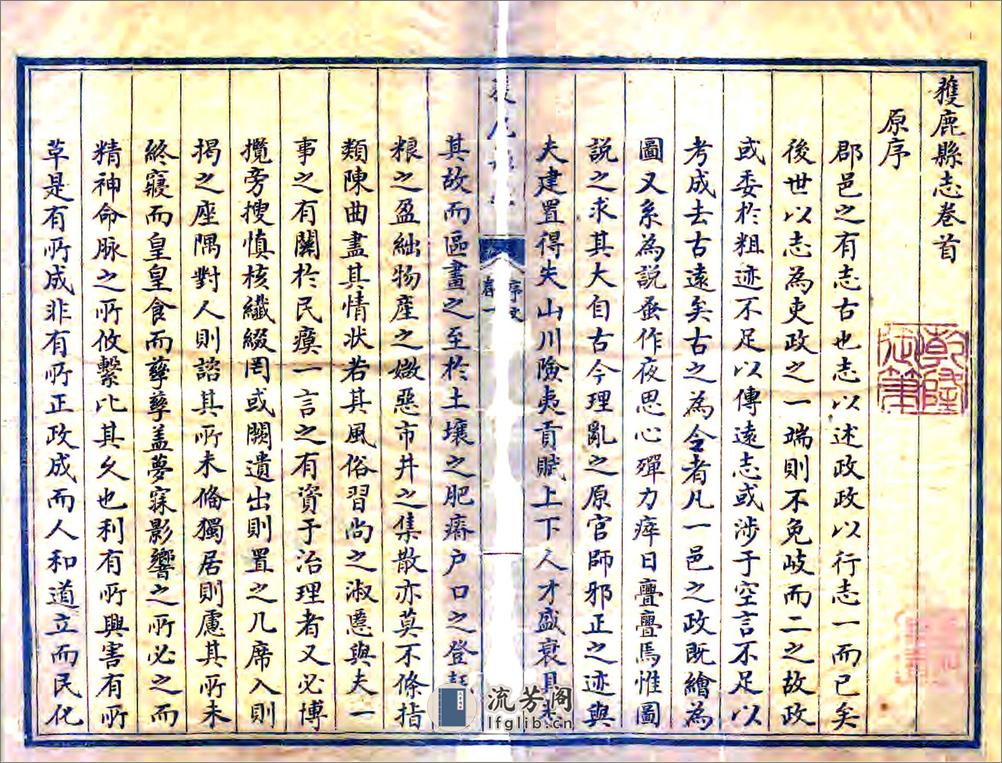 獲鹿縣志卷首
原序
郡邑之有志古也志以述政政以行志一而已矣
後世以志為吏政之一端則不免岐而二之故政
或委於粗迹不足以傳遠志或涉于空言不足以
考成去古遠矣古之為令者凡一邑之政既繪為
圖又系為說蚤作夜思心殫力瘁日亹亹焉惟圖
說之求其大自古今理亂之原官師邪正之迹與
夫建置得失山川險夷貢賦上下人才盛衰具
序文
卷一
其故而區畫之至於土壤之肥瘠户口之登
粮之盈絀物産之媺惡市井之集散亦莫不條指
類陳曲盡其情状若其風俗習尚之淑慝與夫一
事之有關於民瘼一言之有資于治理者又必博
攬旁搜慎核纖綴罔或闕遺出則置之几席入則
揭之座隅對人則諮其所未備獨居則慮其所未
終寢而皇皇食而孳孳盖夢寐影響之所必之而
精神命脉之所攸繫比其久也利有所興害有所
草是有所成非有所正政成而人和道立而民化
乾隆
流芳阁
lfglib.cn